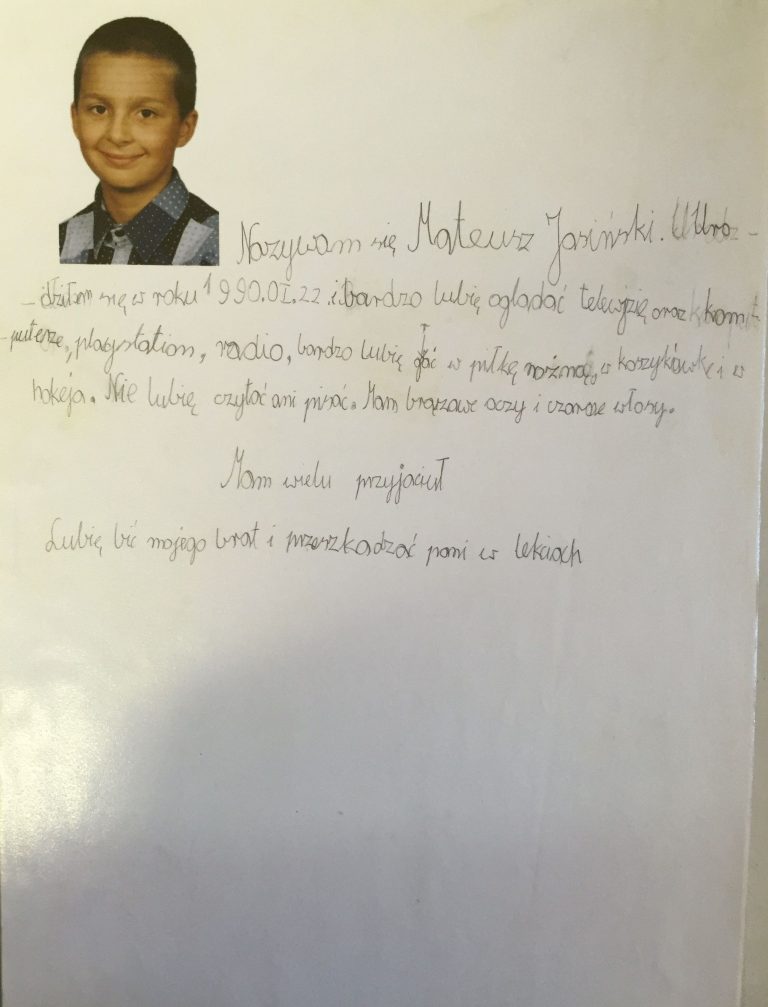 Nazywam się Mateusz Jasiński. Uro-
-dziłam się w roku 1990.01.22. i bardzo lubię oglądać telewizię oraz kom-
-puterze, playstation, radio, bardzo lubię grać w piłkę nożną, w koszykówkę i w
hokeja. Nie lubię czytać ani pisać. Mam brązowe oczy i czarne włosy.
Mam wielu przyjaciuł
Lubię bić mojego brat i przeszkadzać pani w lekciach